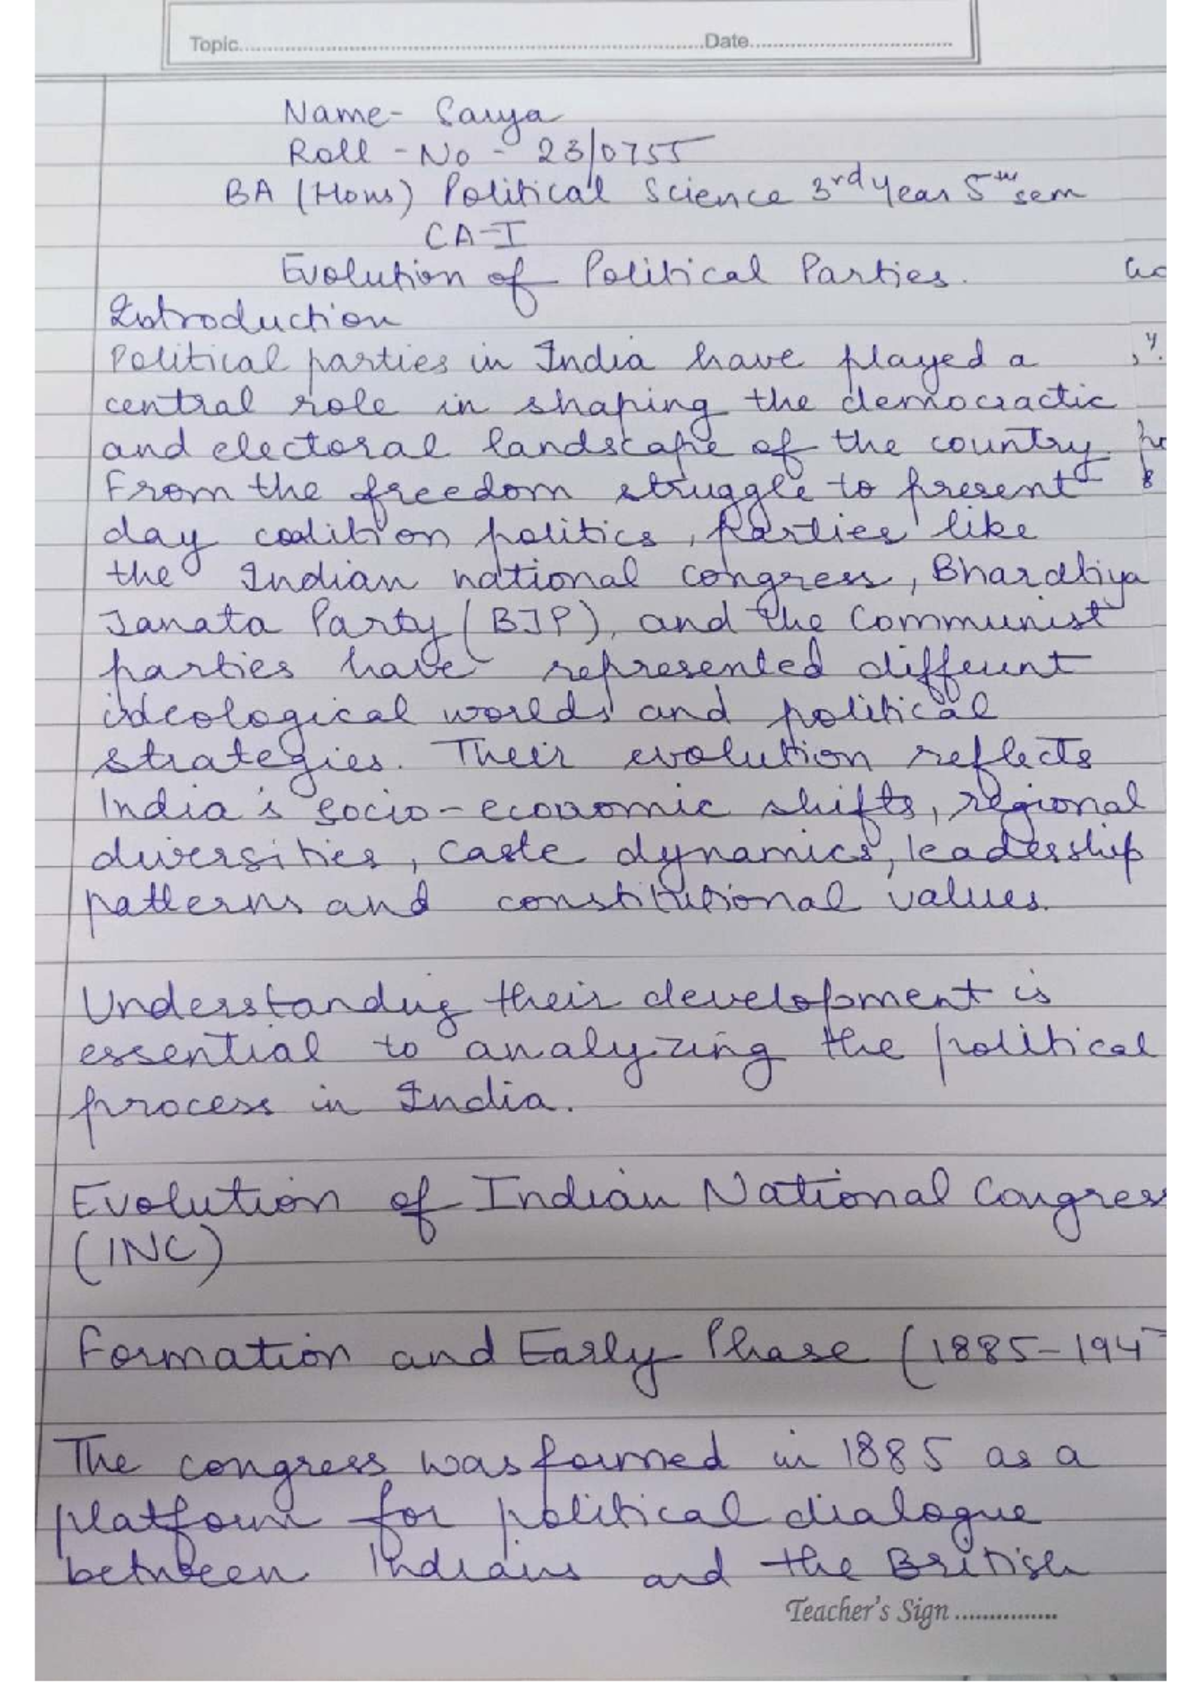 Topic..........Date..........
Name- Sarya
Roll - No - 23/0755
BA (Hons) Political Science 3rd Year 5th sem
CA-I
Evolution of Political Parties.
Introduction
Political parties in India have played a
central role in shaping the democractic
and electoral landscape of the country.
From the freedom struggle to present
day coalition politics, parties like
the Indian national congress, Bhardtiya
Janata Party (BJP), and the Communist
parties have represented different
ideological worlds and political
strategies. Their evolution reflects
India's socio-economic shifts, regional
diversities, caste dynamics, leadership
patterns and constitutional values.
Understanding their development is
essential to analyzing the political
process in India.
Evolution of Indian National Congres
(INC)
Formation and Early Phase (1885-194
The congress was formed in 1885 as a
platform for political dialogue
between Indians and the British
Teacher's Sign ...............